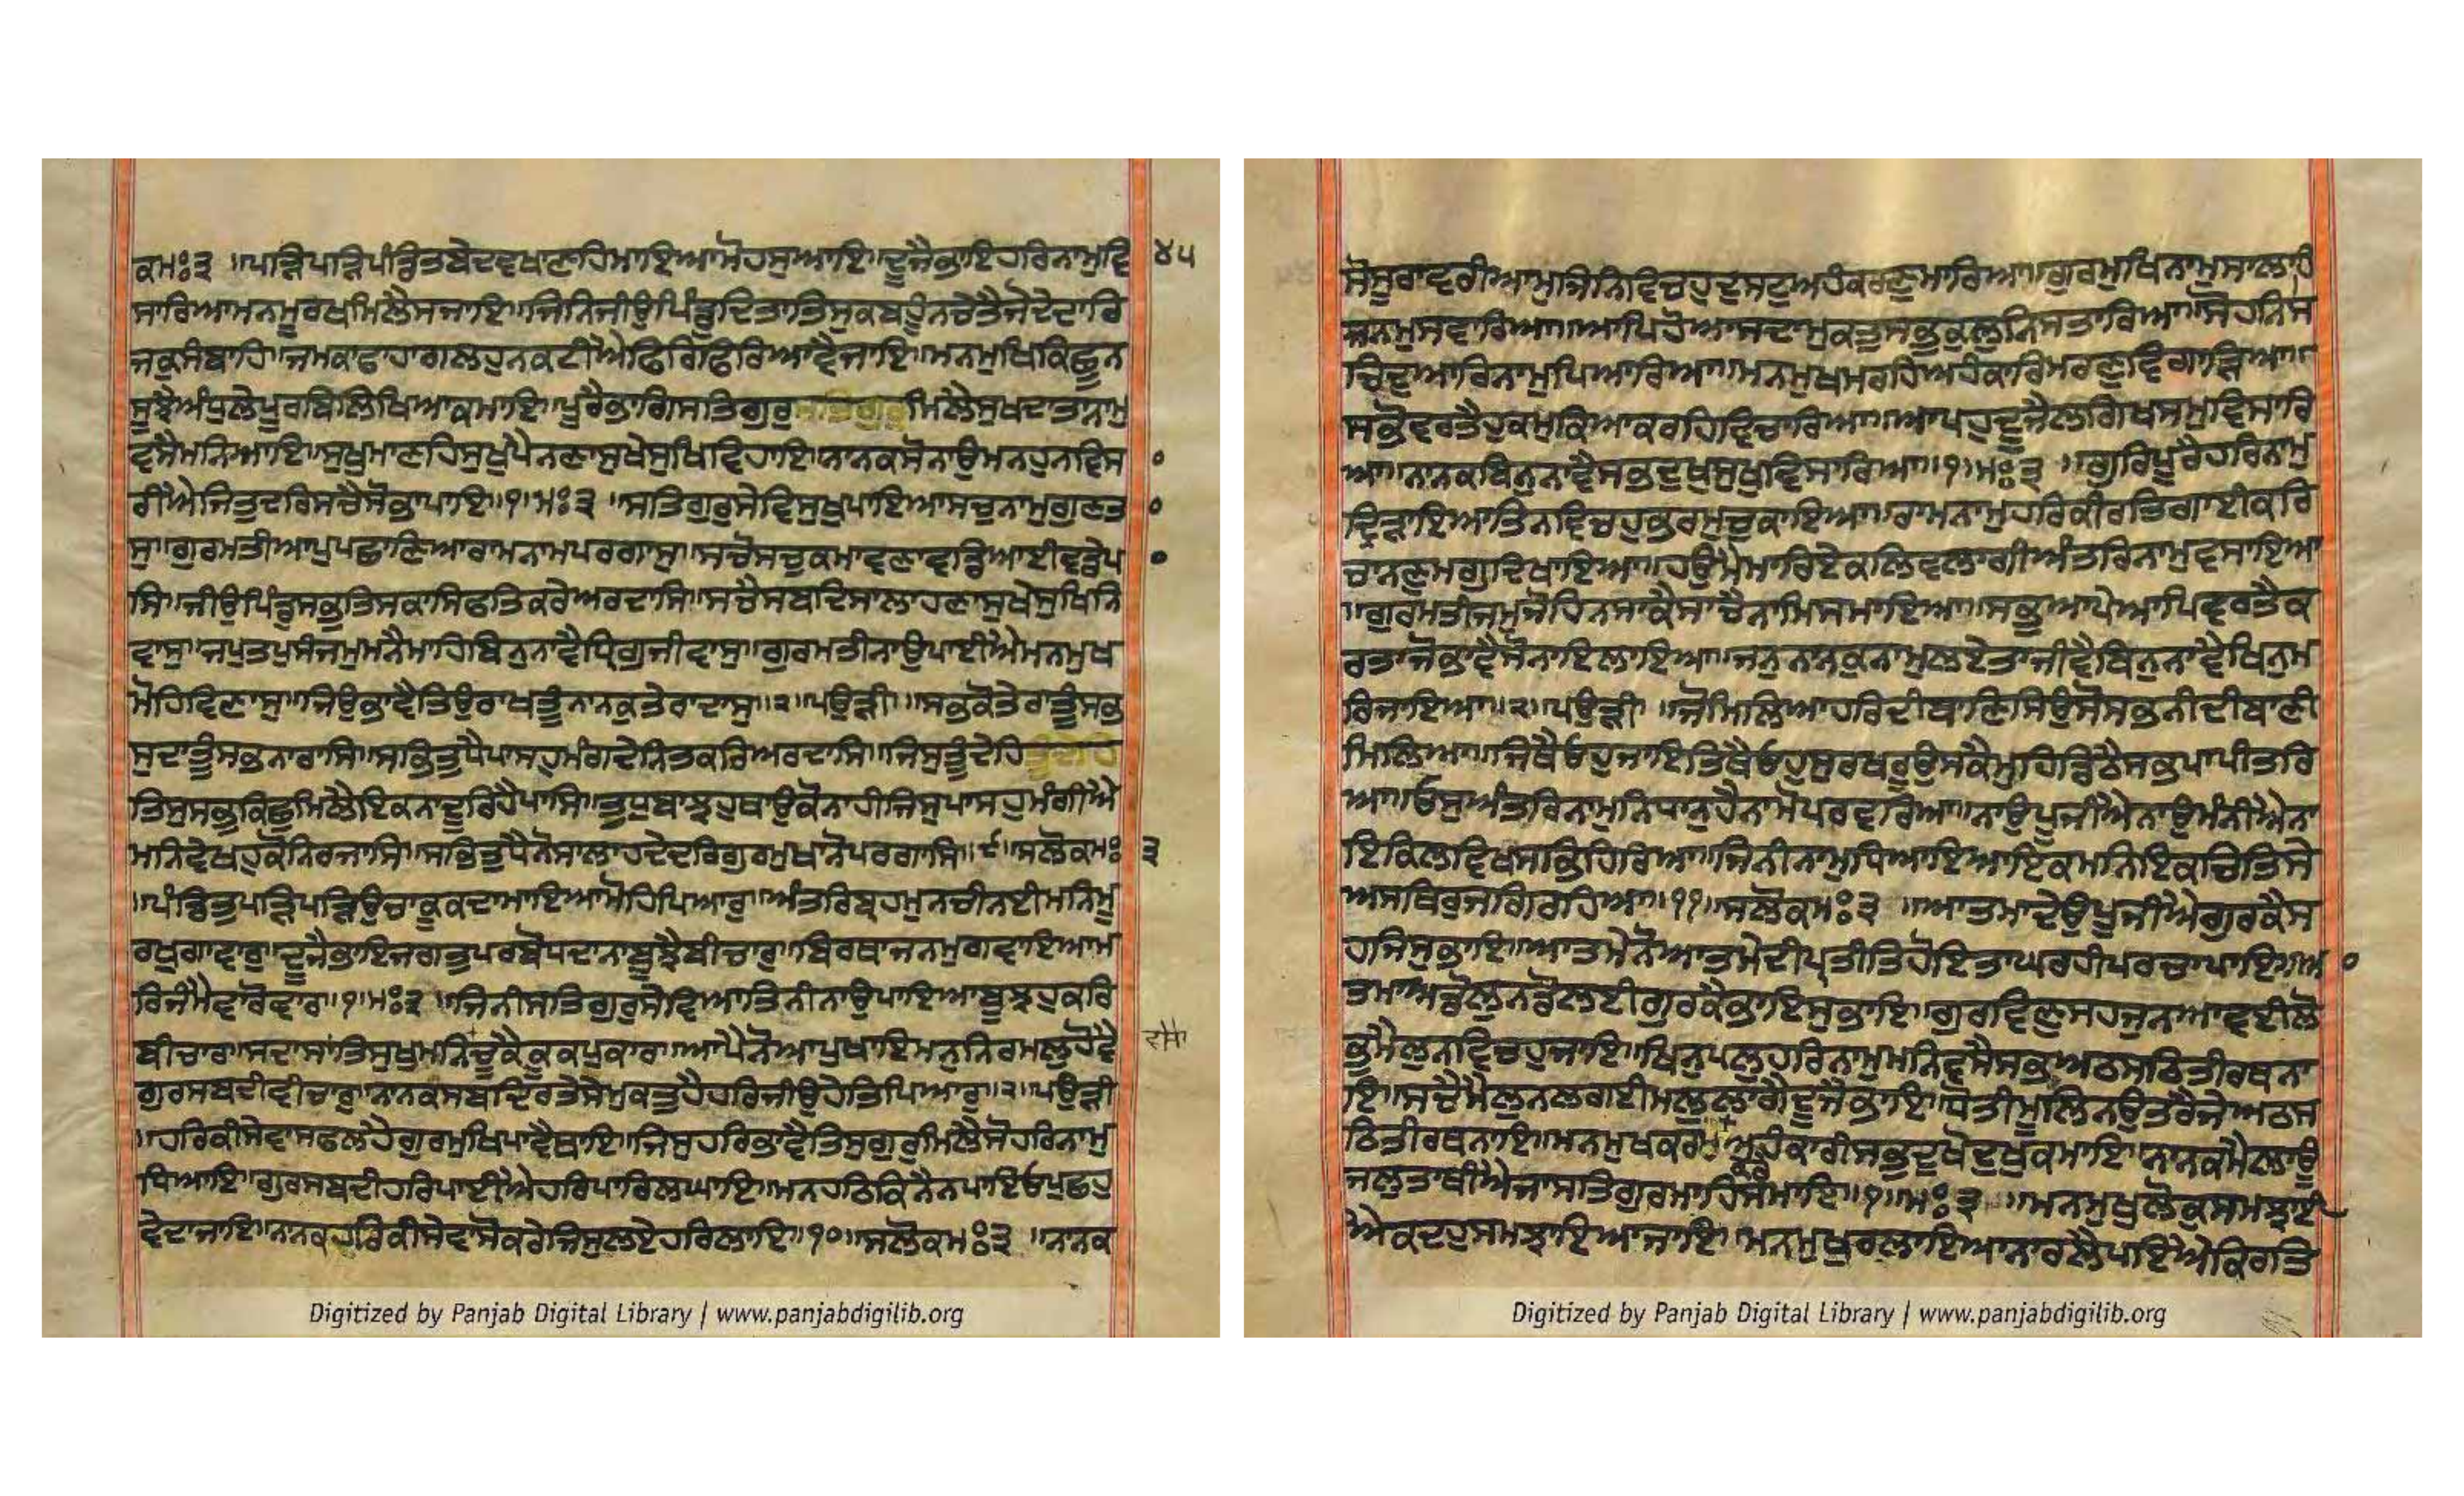 ਕਮਃ੩ ॥ਪੜਿਪੜਿਪੰਡਿਤਬੇਦਵਖਾਣਹਿਮਾਇਆਮੋਹਸੁਆਇ॥ਦੂਜੈਭਾਇਹਰਿਨਾਮੁਵਿ ੪੫
ਸਾਰਿਆਮਨਮੂਰਖਮਿਲੈਸਜਾਇ॥ਜਿਨਿਜੀਉਪਿੰਡੁਦਿਤਾਤਿਸੁਕਬਹੂੰਨਚੇਤੈਜੋਦੇਦਾਰਿ
ਜਕੁਸੰਬਾਹਿ॥ਜਮਕਾਫਾਹਾਗਲਹੁਨਕਟੀਐਫਿਰਿਫਿਰਿਆਵੈਜਾਇ॥ਮਨਮੁਖਿਕਿਛੂਨ
ਸੂਝੈਅੰਧੁਲੇਪੂਰਬਿਲਿਖਿਆਕਮਾਇ॥ਪੂਰੈਭਾਗਿਸਤਿਗੁਰੁਸਤਿਗੁਰੁਮਿਲੈਸੁਖਦਾਤਾਨਾਮੁ
ਵਸੈਮਨਿਆਇ॥ਸੁਖੁਮਾਣਹਿਸੁਖੁਪੈਨਣਾਸੁਖੇਸੁਖਿਵਿਹਾਇ॥ਨਾਨਕਸੋਨਾਉਮਨਹੁਨਵਿਸ ०
ਰੀਐਜਿਤੁਦਰਿਸਚੈਸੋਭਾਪਾਇ॥੧॥ਮਃ੩ ॥ਸਤਿਗੁਰੁਸੇਵਿਸੁਖੁਪਾਇਆਸਚੁਨਾਮੁਗੁਣਤਾ ०
ਸੁ॥ਗੁਰਮਤੀਆਪੁਪਛਾਣਿਆਰਾਮਨਾਮਪਰਗਾਸੁ॥ਸਚੋਸਚੁਕਮਾਵਣਾਵਡਿਆਈਵਡੇਪਾ ०
ਸਿ॥ਜੀਉਪਿੰਡੁਸਭੁਤਿਸਕਾਸਿਫਤਿਕਰੇਅਰਦਾਸਿ॥ਸਚੈਸਬਦਿਸਾਲਾਹਣਾਸੁਖੇਸੁਖਿਨਿ
ਵਾਸੁ॥ਜਪੁਤਪੁਸੰਜਮੁਮਨੈਮਾਹਿਬਿਨੁਨਾਵੈਧ੍ਰਿਗੁਜੀਵਾਸੁ॥ਗੁਰਮਤੀਨਾਉਪਾਈਐਮਨਮੁਖ
ਮੋਹਿਵਿਣਾਸੁ॥ਜਿਉਭਾਵੈਤਿਉਰਾਖੁਤੂੰਨਾਨਕੁਤੇਰਾਦਾਸੁ॥੨॥ਪਉੜੀ॥ਸਭੁਕੋਤੇਰਾਤੂੰਸਭ
ਸੁਦਾਤੂੰਸਭਨਾਰਾਸਿ॥ਸਭਿਤੁਧੈਪਾਸਹੁਮੰਗਦੇਨਿਤਕਰਿਅਰਦਾਸਿ॥ਜਿਸੁਤੂੰਦੇਹਿਤੂੰਦੇਹਿ
ਤਿਸੁਸਭੁਕਿਛੁਮਿਲੈਇਕਨਾਦੂਰਿਹੈਪਾਸਿ॥ਤੁਧੁਬਾਝਹੁਥਾਉਕੋਨਾਹੀਜਿਸੁਪਾਸਹੁਮੰਗੀਐ
ਮਨਿਵੇਖਹੁਕੋਨਿਰਜਾਸਿ॥ਸਭਿਤੁਧੈਨੋਸਾਲਾਹਦੇਦਰਿਗੁਰਮੁਖਾਨੋਪਰਗਾਸਿ॥੯॥ਸਲੋਕਮਃ ੩
॥ਪੰਡਿਤੁਪੜਿਪੜਿਉਚਾਕੂਕਦਾਮਾਇਆਮੋਹਿਪਿਆਰੁ॥ਅੰਤਰਿਬ੍ਰਹਮੁਨਚੀਨਈਮਨਿਮੂ
ਰਖੁਗਾਵਾਰੁ॥ਦੂਜੈਭਾਇਜਗਤੁਪਰਬੋਧਦਾਨਾਬੂਝੈਬੀਚਾਰੁ॥ਬਿਰਥਾਜਨਮੁਗਵਾਇਆਮ
ਰਿਜੰਮੈਵਾਰੋਵਾਰ॥੧॥ਮਃ੩ ॥ਜਿਨੀਸਤਿਗੁਰੁਸੇਵਿਆਤਿਨੀਨਾਉਪਾਇਆਬੂਝਹੁਕਰਿ
ਬੀਚਾਰੁ॥ਸਦਾਸਾਂਤਿਸੁਖੁਮਨਿਚੂਕੈਕੂਕਪੁਕਾਰ॥ਆਪੈਨੋਆਪੁਖਾਇਮਨੁਨਿਰਮਲੁਹੋਵੈ
ਗੁਰਸਬਦੀਵੀਚਾਰੁ॥ਨਾਨਕਸਬਦਿਰਤੇਸੇਮੁਕਤੁਹੈਹਰਿਜੀਉਹੇਤਿਪਿਆਰੁ॥੨॥ਪਉੜੀ
॥ਹਰਿਕੀਸੇਵਾਸਫਲਹੈਗੁਰਮੁਖਿਪਾਵੈਥਾਇ॥ਜਿਸੁਹਰਿਭਾਵੈਤਿਸੁਗੁਰੁਮਿਲੈਸੋਹਰਿਨਾਮੁ
ਧਿਆਇ॥ਗੁਰਸਬਦੀਹਰਿਪਾਈਐਹਰਿਪਾਰਿਲਘਾਇ॥ਮਨਹਠਿਕਿਨੈਨਪਾਇਓਪੁਛਹੁ
ਵੇਦਾਜਾਇ॥ਨਾਨਕਹਰਿਕੀਸੇਵਾਸੋਕਰੇਜਿਸੁਲਏਹਰਿਲਾਇ॥੧੦॥ਸਲੋਕਮਃ੩ ॥ਨਾਨਕ
Digitized by Panjab Digital Library | www.panjabdigilib.org
ਸੋਸੂਰਾਵਰੀਆਮੁਜਿਨਿਵਿਚਹੁਦੁਸਟੁਅਹੰਕਰਣੁਮਾਰਿਆ॥ਗੁਰਮੁਖਿਨਾਮੁਸਾਲਾਹਿ
ਜਨਮੁਸਵਾਰਿਆ॥ਆਪਿਹੋਆਸਦਾਮੁਕਤੁਸਭੁਕੁਲੁਨਿਸਤਾਰਿਆ॥ਸੋਹਨਿਸ
ਚਿਦੁਆਰਿਨਾਮੁਪਿਆਰਿਆ॥ਮਨਮੁਖਮਰਹਿਅਹੰਕਾਰਿਮਰਣੁਵਿਗਾੜਿਆ॥
ਸਭੋਵਰਤੈਹੁਕਮੁਕਿਆਕਰਹਿਵਿਚਾਰਿਆ॥ਆਪਹੁਦੂਜੈਲਗਿਖਸਮੁਵਿਸਾਰਿ
ਆ॥ਨਾਨਕਬਿਨੁਨਾਵੈਸਭੁਦੁਖੁਸੁਖੁਵਿਸਾਰਿਆ॥੧॥ਮਃ੩ ॥ਗੁਰਿਪੂਰੈਹਰਿਨਾਮੁ
ਦਿੜਾਇਆਤਿਨਵਿਚਹੁਭਰਮੁਚੁਕਾਇਆ॥ਰਾਮਨਾਮੁਹਰਿਕੀਰਤਿਗਾਈਕਰਿ
ਚਾਨਣੁਮਗੁਦਿਖਾਇਆ॥ਹਉਮੈਮਾਰਿਏਕਲਿਵਲਾਗੀਅੰਤਰਿਨਾਮੁਵਸਾਇਆ
॥ਗੁਰਮਤੀਜਮੁਜੋਹਿਨਸਾਕੈਸਾਚੈਨਾਮਿਸਮਾਇਆ॥ਸਭੁਆਪੇਆਪਿਵਰਤੈਕ
ਰਤਾਜੋਭਾਵੈਸੋਨਾਇਲਾਇਆ॥ਜਨੁਨਾਨਕੁਨਾਮੁਲਏਤਾਜੀਵੈਬਿਨੁਨਾਵੈਖਿਨੁਮ
ਰਿਜਾਇਆ॥੨॥ਪਉੜੀ ॥ਜੋਮਿਲਿਆਹਰਿਦੀਬਾਣਸਿਉਸੋਸਭਨੀਦੀਬਾਣੀ
ਮਿਲਿਆ॥ਜਿਥੈਓਹੁਜਾਇਤਿਥੈਓਹੁਸੁਰਖਰੂਉਸਕੈਮੁਹਿਡਿਠੈਸਭਪਾਪੀਤਰਿ
ਆ॥ਓਸੁਅੰਤਰਿਨਾਮੁਨਿਧਾਨੁਹੈਨਾਮੋਪਰਵਰਿਆ॥ਨਾਉਪੂਜੀਐਨਾਉਮੰਨੀਐਨਾ
ਇਕਿਲਵਿਖਸਭਿਹਿਰਿਆ॥ਜਿਨੀਨਾਮੁਧਿਆਇਆਇਕਮਨਿਇਕਚਿਤਿਸੇ
ਅਸਥਿਰੁਜਗਿਰਹਿਆ॥੧੧॥ਸਲੋਕਮਃ੩ ॥ਆਤਮਾਦੇਉਪੂਜੀਐਗੁਰਕੈਸ
ਹਜਿਸੁਭਾਇ॥ਆਤਮੇਨੋਆਤਮੇਦੀਪ੍ਰਤੀਤਿਹੋਇਤਾਘਰਹੀਪਰਚਾਪਾਇ॥ਆ ०
ਤਮਾਅਡੋਲੁਨਡੋਲਈਗੁਰਕੈਭਾਇਸੁਭਾਇ॥ਗੁਰਵਿਣੁਸਹਜੁਨਆਵਈਲੋ
ਭੁਮੈਲੁਨਵਿਚਹੁਜਾਇ॥ਖਿਨੁਪਲੁਹਰਿਨਾਮੁਮਨਿਵਸੈਸਭਅਠਸਠਿਤੀਰਥਨਾ
ਇ॥ਸਚੈਮੈਲੁਨਲਗਈਮਲੁਲਾਗੈਦੂਜੈਭਾਇ॥ਧੋਤੀਮੂਲਿਨਉਤਰੈਜੇਅਠਸ
ਠਿਤੀਰਥਨਾਇ॥ਮਨਮੁਖਕਰਮਅਹੰਕਾਰੀਸਭੁਦੁਖੋਦੁਖੁਕਮਾਇ॥ਨਾਨਕਮੈਲਾਊ
ਜਲੁਤਾਥੀਐਜਾਸਤਿਗੁਰਮਾਹਿਸਮਾਇ॥੧॥ਮਃ੩ ॥ਮਨਮੁਖੁਲੋਕੁਸਮਝਾਈ
ਐਕਦਹੁਸਮਝਾਇਆਜਾਇ॥ਮਨਮੁਖੁਰਲਾਇਆਨਾਰਲੈਪਇਐਕਿਰਤਿ
Digitized by Panjab Digital Library | www.panjabdigilib.org